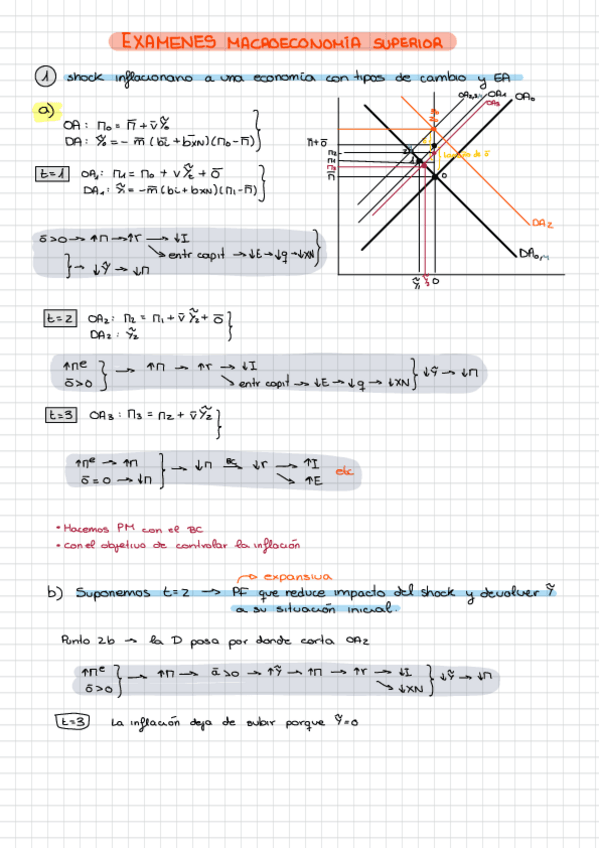 EXAMENES MACROECONOMÍA SUPERIOR
① shock inflacionario a una economía con tipos de cambio y EA
a)
OA: π₀ = π̄ + v̄Ỹ₀
DA: Ỹ₀ = - m̄ (b̄i + b̄xN)(π₀-π̄)
t=1 OA₁: π₁ = π₀ + vỸt + ō
DA₁: Ỹt = -m̄(bi + bxN)(π₁-π̄)
ō>0 → ↑π → ↑r → ↓I
entr capit → ↓E → ↓q → ↓XN
→ ↓Ỹ → ↓π
OA₂,₂,₁ OA₁ OA₃ OA₀
π+ō
π₂
π₁
π₃
π̄
0
DA₂
DA₀,₁
Ỹ₁ Ỹ₃ 0
t=2 OA₂: π₂ = π₁ + v̄Ỹ₂ + ō
DA₂: Ỹ₂
↑πe
ō>0
→ ↑π → ↑r → ↓I
entr capit → ↓E → ↓q → ↓XN
↓Ỹ → ↓π
t=3 OA₃: π₃ = π₂ + v̄Ỹ₂
↑πe → ↑π
ō=0 → ↓π
→ ↓π BC→ ↓r → ↑I
↑E
etc
• Hacemos PM con el BC
• con el objetivo de controlar la inflación
→ expansiva
b) Suponemos t=2 → PF que reduce impacto del shock y devolver Ỹ
a su situación inicial.
Punto 2b → la D pasa por donde corta OA₂
↑πe
ō>0
→ ↑π → ā>0 → ↑Ỹ → ↑π → ↑r → ↓I
↓XN
↓Ỹ → ↓π
t=3 La inflación deja de subir porque Ỹ=0